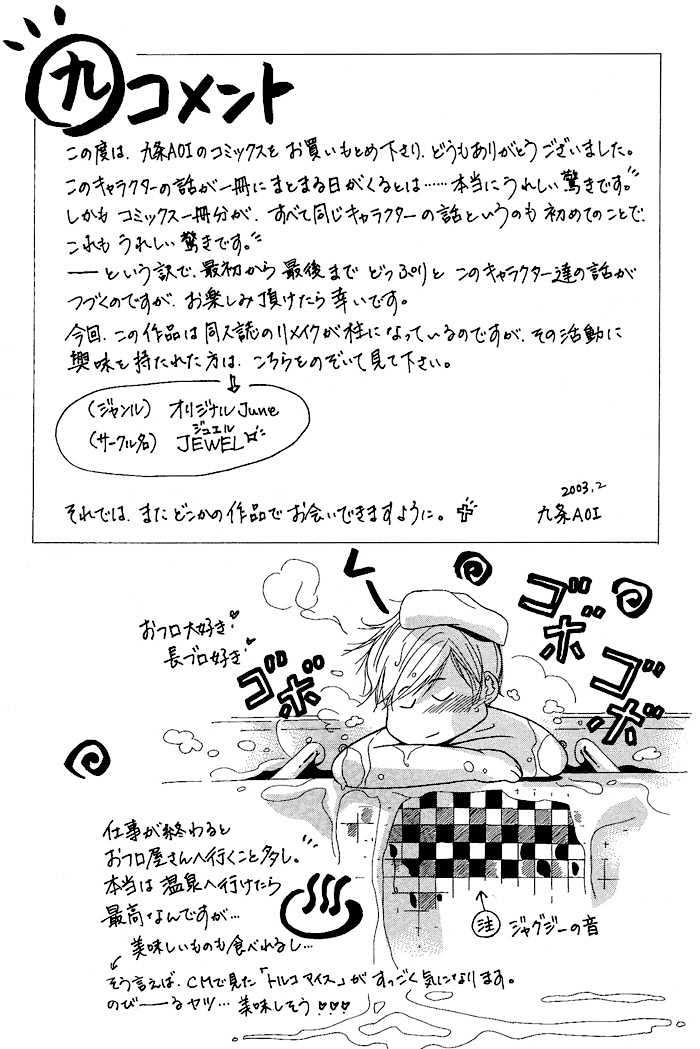 九 コメント
この度は、九条AOIのコミックスを お買いもとめ下さり、どうもありがとうございました。
このキャラクターの話が一冊にまとまる日がくるとは……本当にうれしい驚きです。
しかも コミックス一冊分が、すべて同じキャラクターの話というのも 初めてのことで、
これも うれしい 驚きです。
——という訳で、最初から 最後まで どっぷりと このキャラクター達の話が
つづくのですが、お楽しみ頂けたら 幸いです。
今回、この作品は 同人誌のリメイクが 柱になっているのですが、その活動に
興味を 持たれた方は、こちらをのぞいて見て下さい。
(ジャンル) オリジナルJune
ジュエル
(サークル名) JEWEL
それでは、また どこかの作品で お会いできますように。
2003.2
九条AOI
おフロ大好き♥
長ブロ好き♥
ゴボ
ゴボ
ゴボ
仕事が終わると
おフロ屋さんへ行くこと多し。
本当は 温泉へ行けたら
最高なんですが…
美味しいものも食べれるし…
注 ジャグジーの音
そう言えば、CMで見た「トルコアイス」が すっごく気になります。
のび——るヤツ… 美味しそう♥♥♥